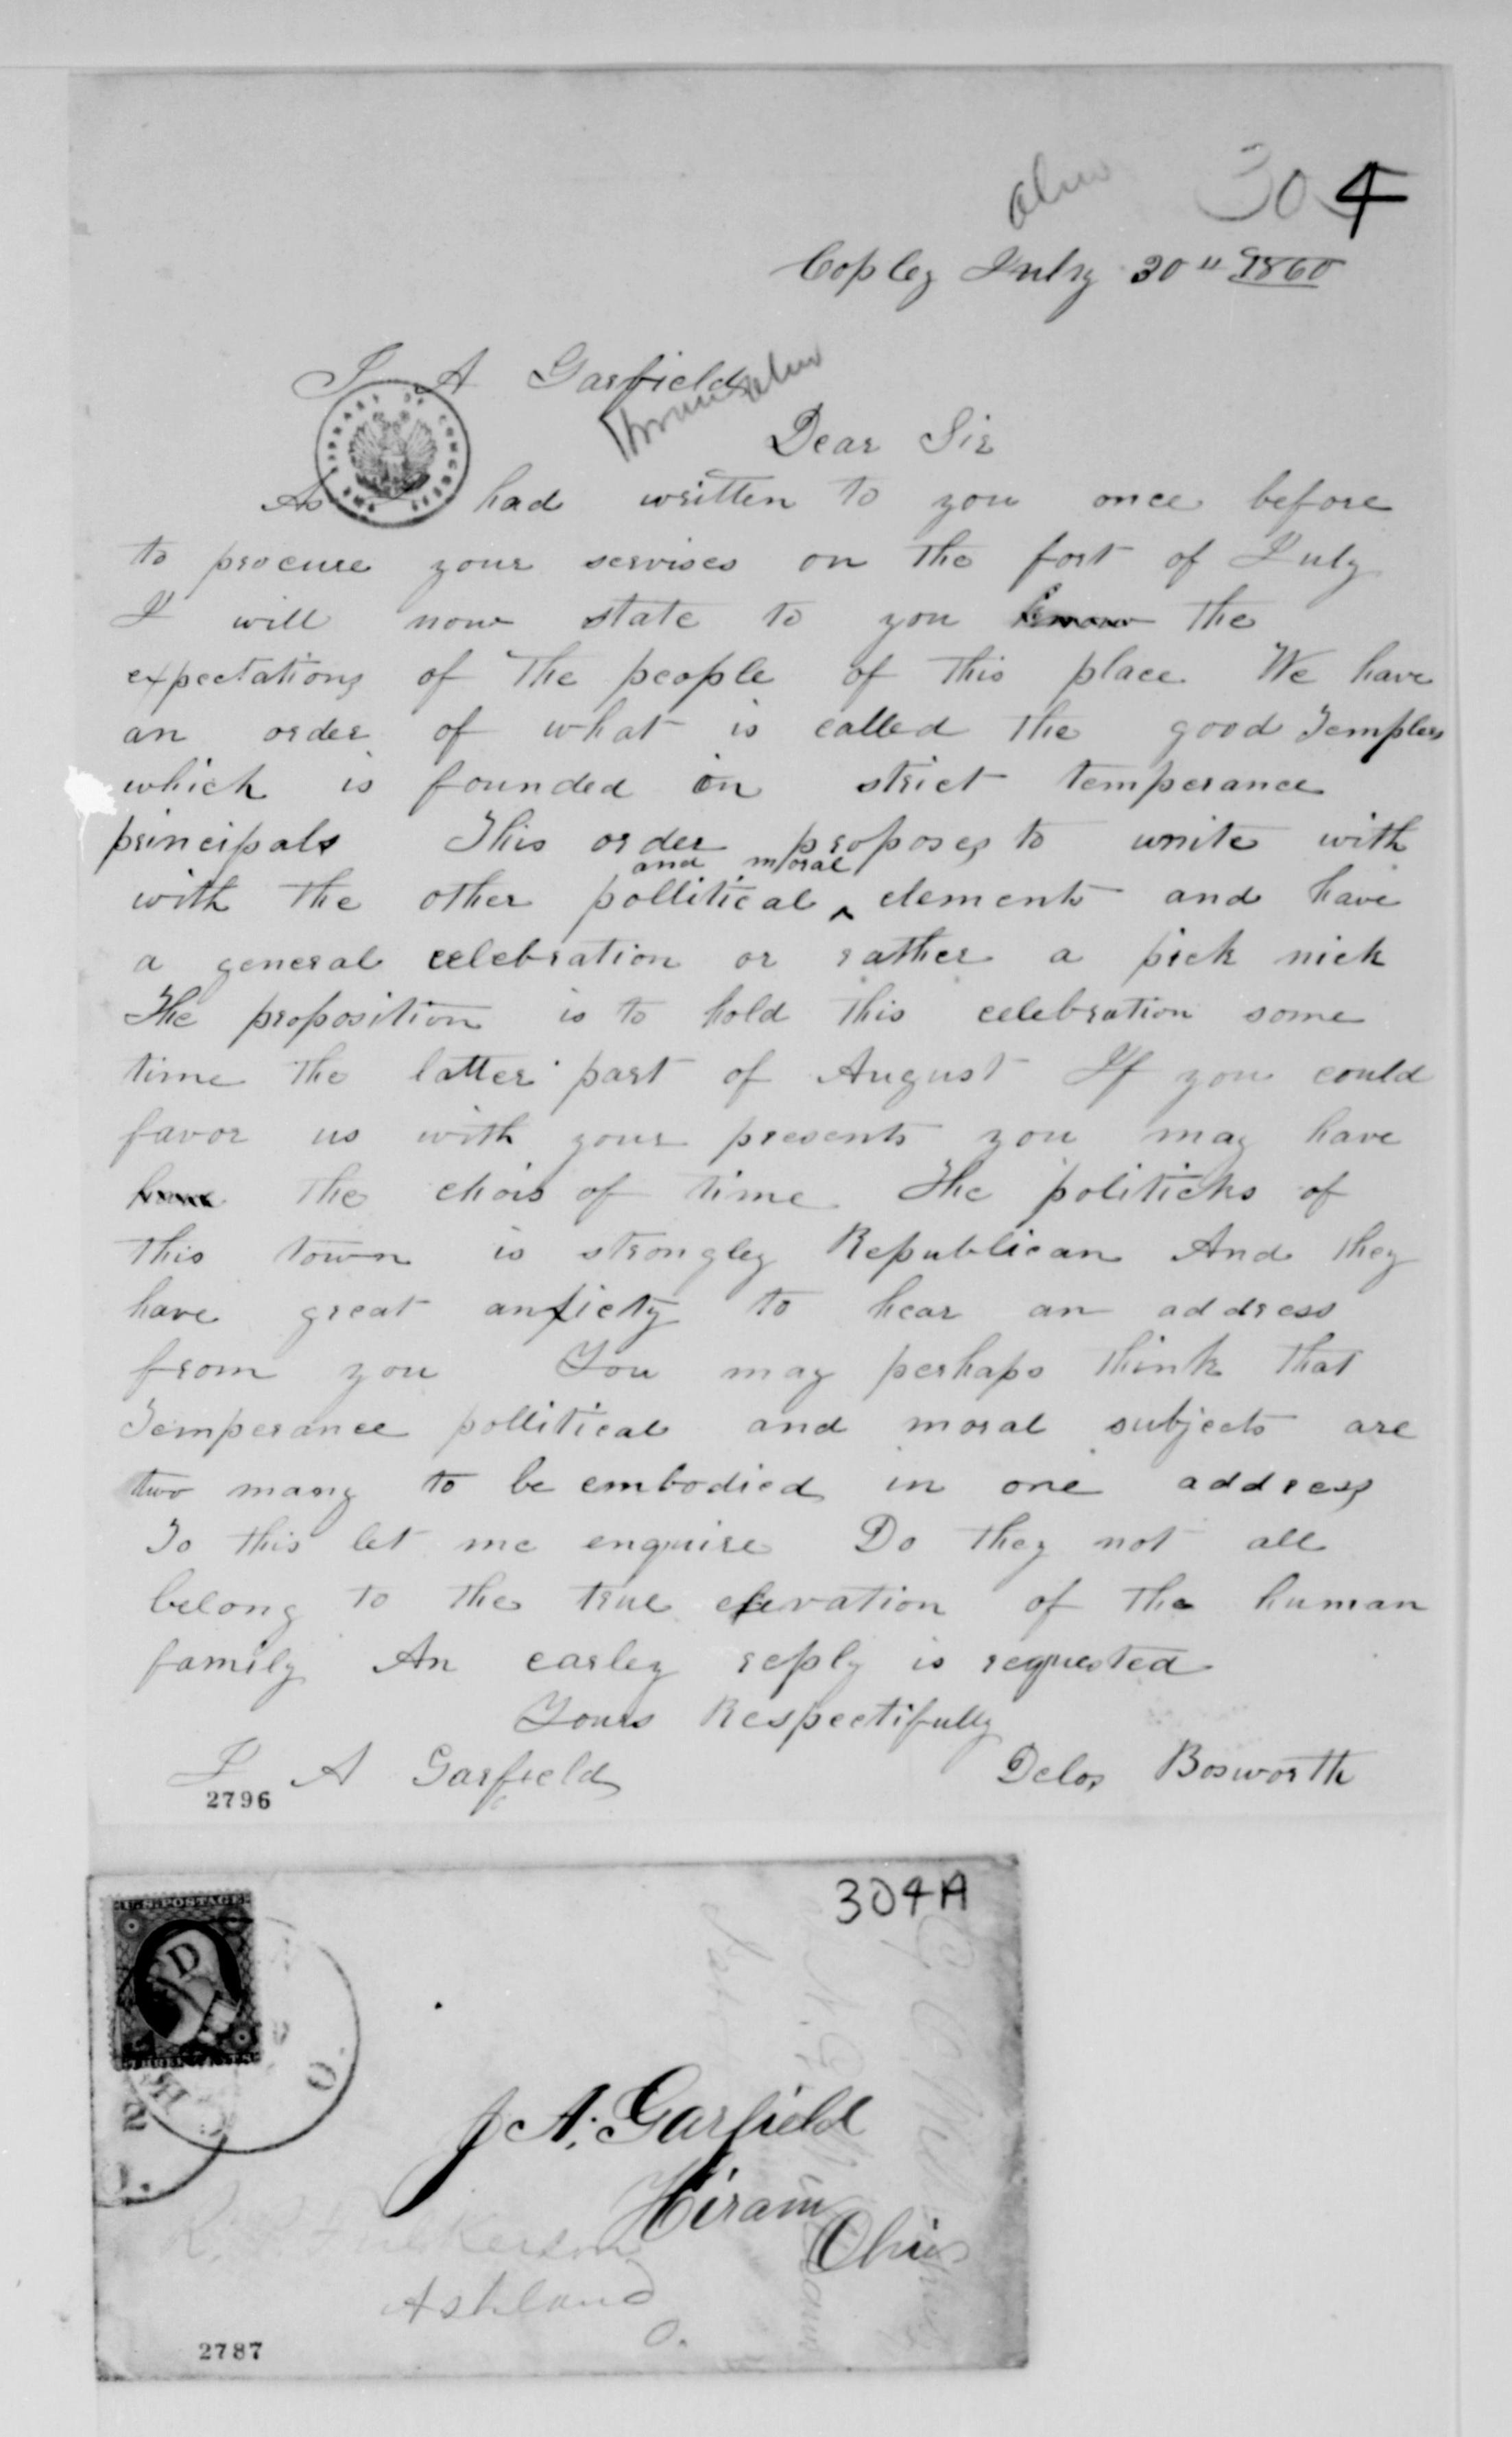 Ohio 304
Copley July 30" 1860
J A Garfield
Hiram Ohio
Dear Sir
As I had written to you once before
to procure your servises on the fort of July
I will now state to you know the
expectations of the people of this place We have
an order of what is called the good Templers
which is founded on strict temperance
principals This order proposes to unite with
and moral
with the other pollitical ^ elements and have
a general celebration or rather a pick nick
The proposition is to hold this celebration some
time the latter part of August If you could
favor us with your presents you may have
have the chois of time The politicks of
this town is strongley Republican And they
have great anxiety to hear an address
from you You may perhaps think that
Temperance pollitical and moral subjects are
two many to be embodied in one address
To this let me enquire Do they not all
belong to the true elevation of the human
family An earley reply is requested
Yours Respectifully
J A Garfield Delos Bosworth
2796
304A
U.S. POSTAGE
O.
J A. Garfield
Hiram
Ohio
Ashland
O.
2787